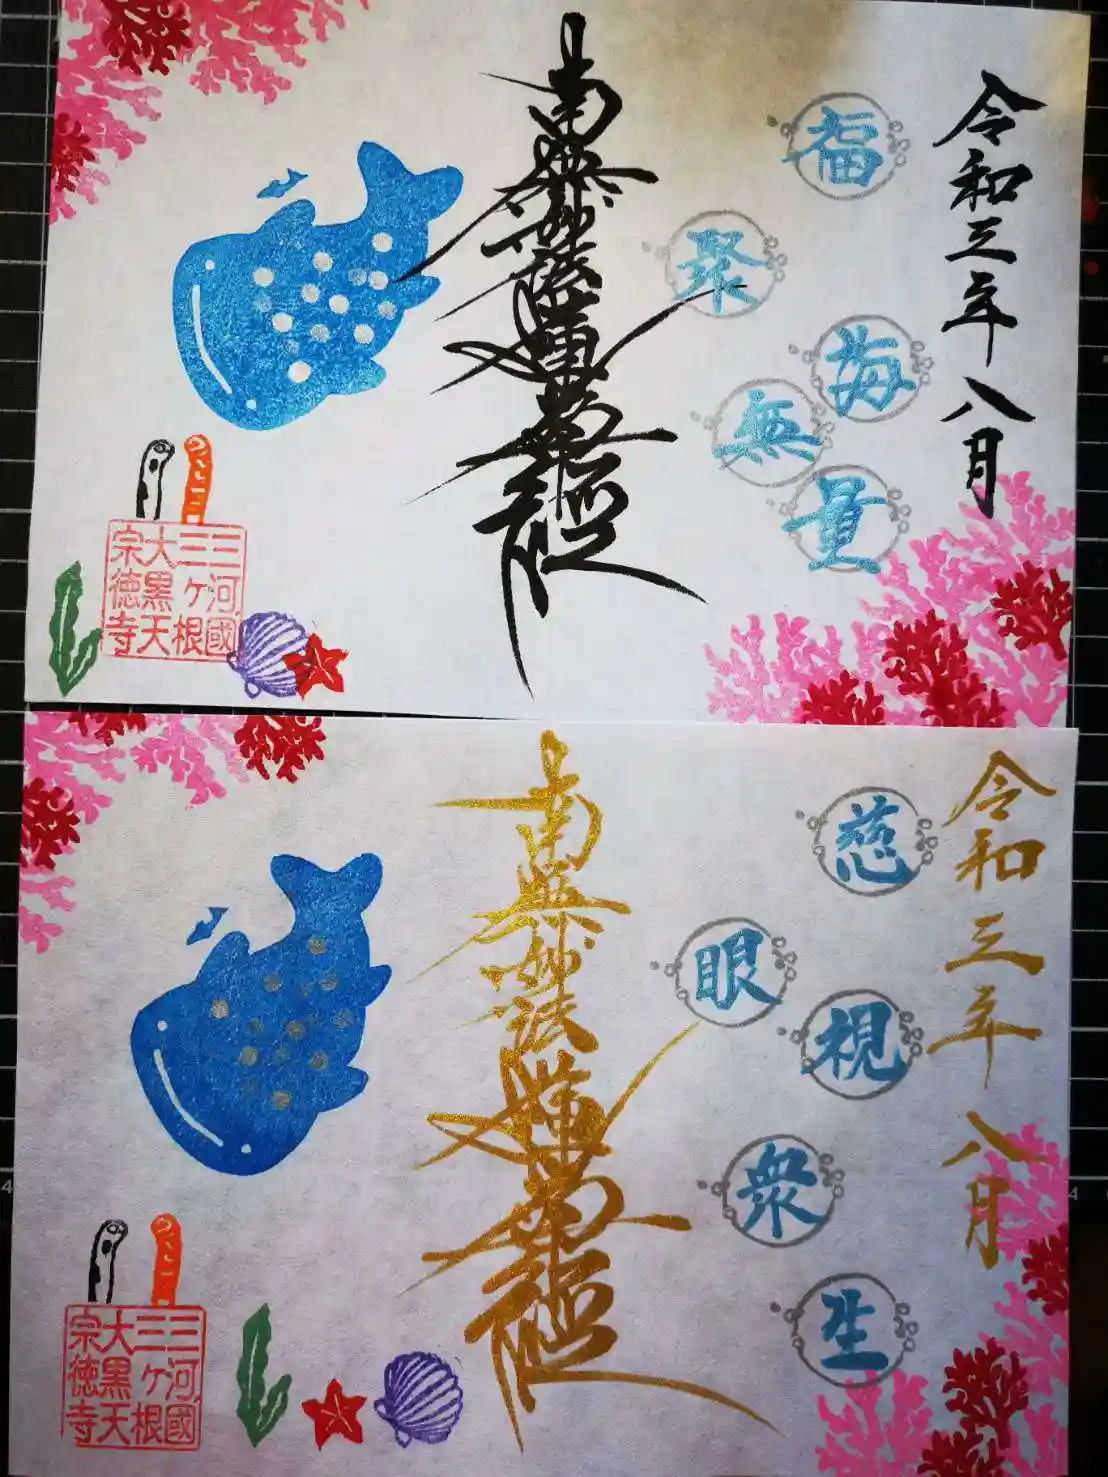 令和三年八月
福聚海無量
南無妙法蓮華経
三河國
三ヶ根
大黒天
宗徳寺
令和三年八月
慈眼視衆生
南無妙法蓮華経
三河國
三ヶ根
大黒天
宗徳寺